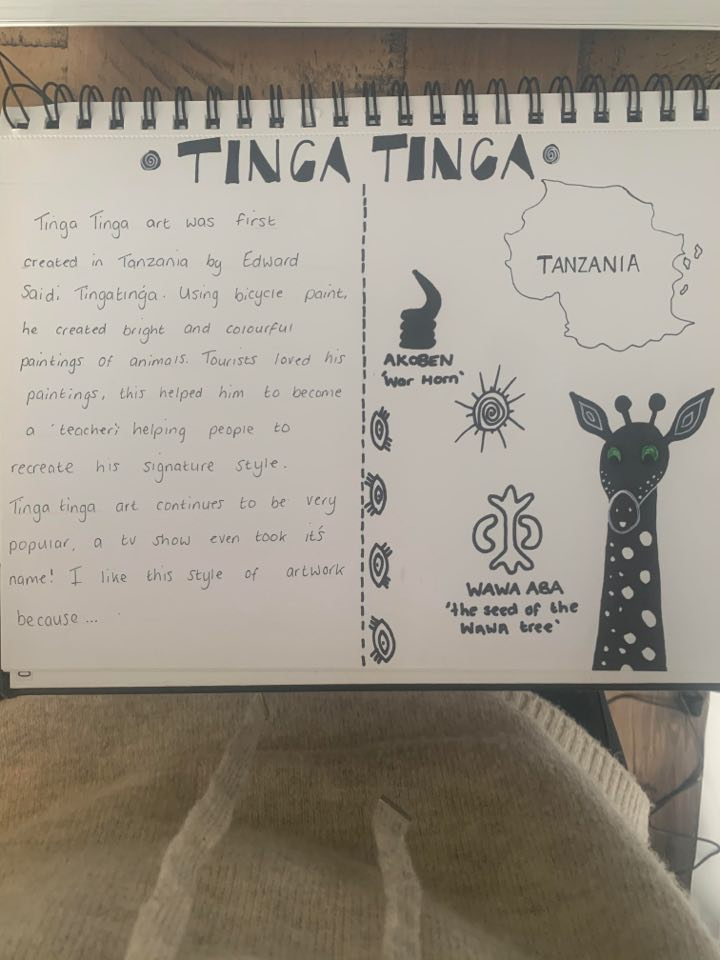 TINGA TINGA
Tinga Tinga art was first
created in Tanzania by Edward
Saidi Tingatinga. Using bicycle paint,
he created bright and colourful
paintings of animals. Tourists loved his
paintings, this helped him to become
a 'teacher', helping people to
recreate his signature style.
Tinga tinga art continues to be very
popular, a tv show even took it's
name! I like this style of artwork
because ...
TANZANIA
AKOBEN
'War Horn'
WAWA ABA
'the seed of the
WAWA tree'